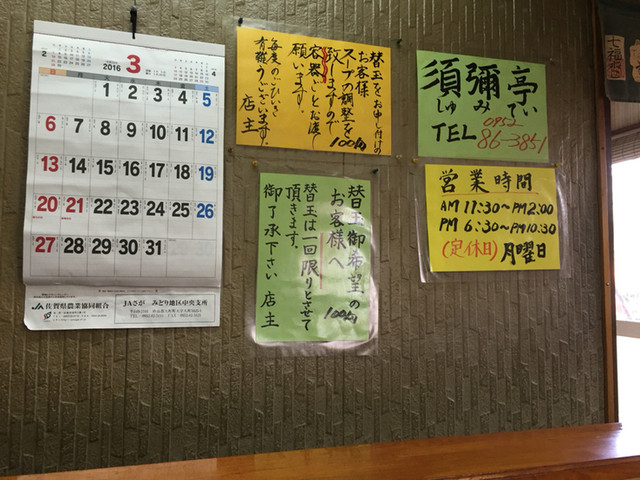 2
2016
3
4
1 2 3 4 5
6 7 8 9 10 11 12
13 14 15 16 17 18 19
20 21 22 23 24 25 26
27 28 29 30 31
JA佐賀県農業協同組合
JAさが みどり地区中央支所
替玉をお申し付けの
お客様
スープの調整を
致しますので
容器ごとお渡し
願います。
毎度のごひいき
有難うございます。
店主
100円
替玉御希望の
お客様へ
100円
替玉は一回限りとさせて
頂きます。
御了承下さい 店主
須彌亭
しゅみてい
TEL 0952
86-3851
営業時間
AM 11:30~PM 2:00
PM 6:30~PM 10:30
(定休日) 月曜日